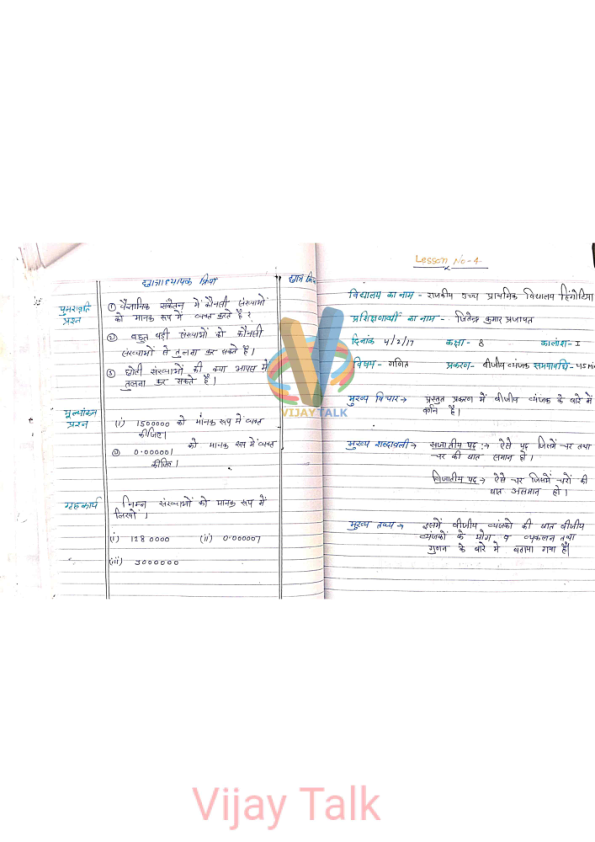 छात्राध्यापक क्रिया
छात्र क्रिया
पुनरावृति
प्रश्न
① वैज्ञानिक संकेतन में कौनसी संख्याओं
को मानक रूप में व्यक्त करते है ?
② बहुत बड़ी संख्याओं को कौनसी
संख्याओं से तुलना कर सकते है।
③ छोटी संख्याओं की क्या आपस में
तुलना कर सकते है।
मूल्यांकन
प्रश्न
(i) 1500000 को मानक रूप में व्यक्त
कीजिए।
② 0.000001 को मानक रूप में व्यक्त
कीजिए।
गृहकार्य
निम्न संख्याओं को मानक रूप में
लिखो ।
(i) 1280000 (ii) 0.000007
(iii) 3000000
Lesson No-4
विद्यालय का नाम - राजकीय उच्च प्राथमिक विद्यालय
प्रशिक्षणार्थी का नाम - जितेन्द्र कुमार प्रजापत
दिनांक 4/2/17 कक्षा - 8 कालांश - I
विषय - गणित प्रकरण - बीजीय व्यंजक समयावधि - 45
मुख्य विचार → प्रस्तुत प्रकरण में बीजीय व्यंजक के बारे में
कौन है।
मुख्य शब्दावली → सजातीय पद :→ ऐसे पद जिसमें चर तथा
चर की घात समान हो।
विजातीय पद → ऐसे चर जिसमें चरों की
घात असमान हो।
मुख्य तथ्य → इसमें बीजीय व्यंजको की घात बीजीय
व्यंजकों के योग व व्यकलन तथा
गुणन के बारे में बताया गया है।
VIJAY TALK
Vijay Talk